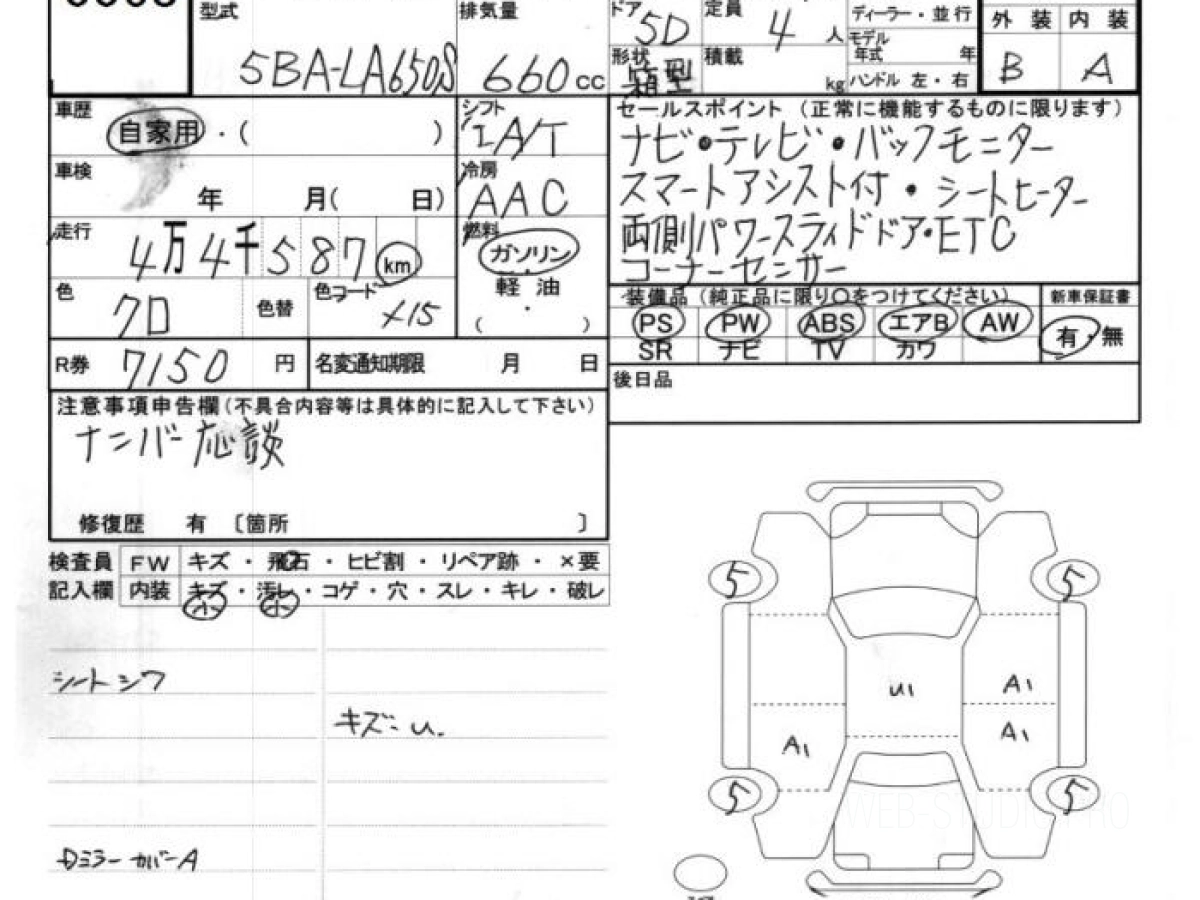 型式 排気量 ドア 5D 定員 4人 ディーラー・並行 外装 内装
モデル年式 年
5BA-LA650S 660cc 形状 箱型 積載 kg ハンドル 左・右 B A
車歴 自家用・( ) シフト IA/T セールスポイント (正常に機能するものに限ります)
ナビ・テレビ・バックモニター
車検 年 月( 日) 冷房 AAC スマートアシスト付・シートヒーター
走行 4万4千587km 燃料 ガソリン 両側パワースライドドア・ETC
軽油 コーナーセンサー
色 クロ 色替 色コード X15 ( ・ ) 装備品 (純正品に限り〇をつけてください) 新車保証書
PS PW ABS エアB AW 有・無
SR ナビ TV カワ
R券 7150円 名変通知期限 月 日 後日品
注意事項申告欄(不具合内容等は具体的に記入して下さい)
ナンバー応談
修復歴 有 〔箇所 〕
検査員 FW キズ・飛石・ヒビ割・リペア跡・×要
記入欄 内装 キズ・汚レ・コゲ・穴・スレ・キレ・破レ
小 小
5 5
シートシワ
U1 A1
キズ=U.
A1 A1
5 5
WEB-STUDIO PRO
ミラーカバーA